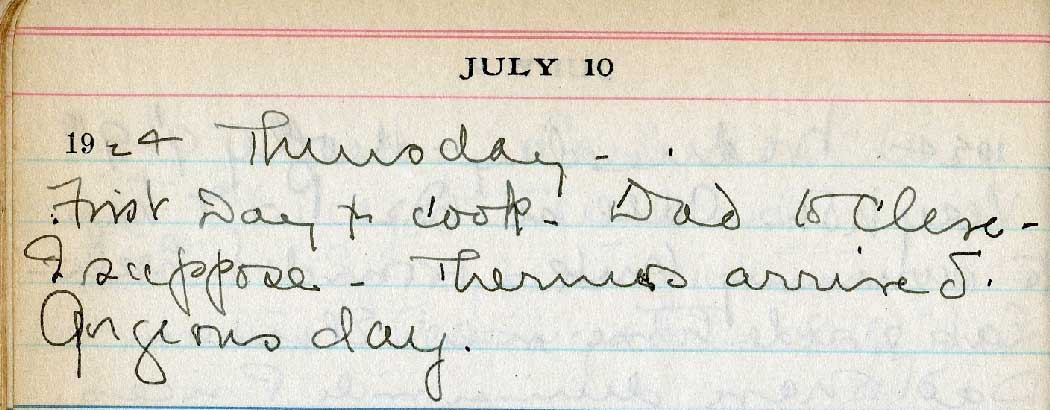 JULY 10
1924 Thursday -
First Day & cook - Dad to Cleve -
I suppose - Thermos arrived.
Gorgeous day.